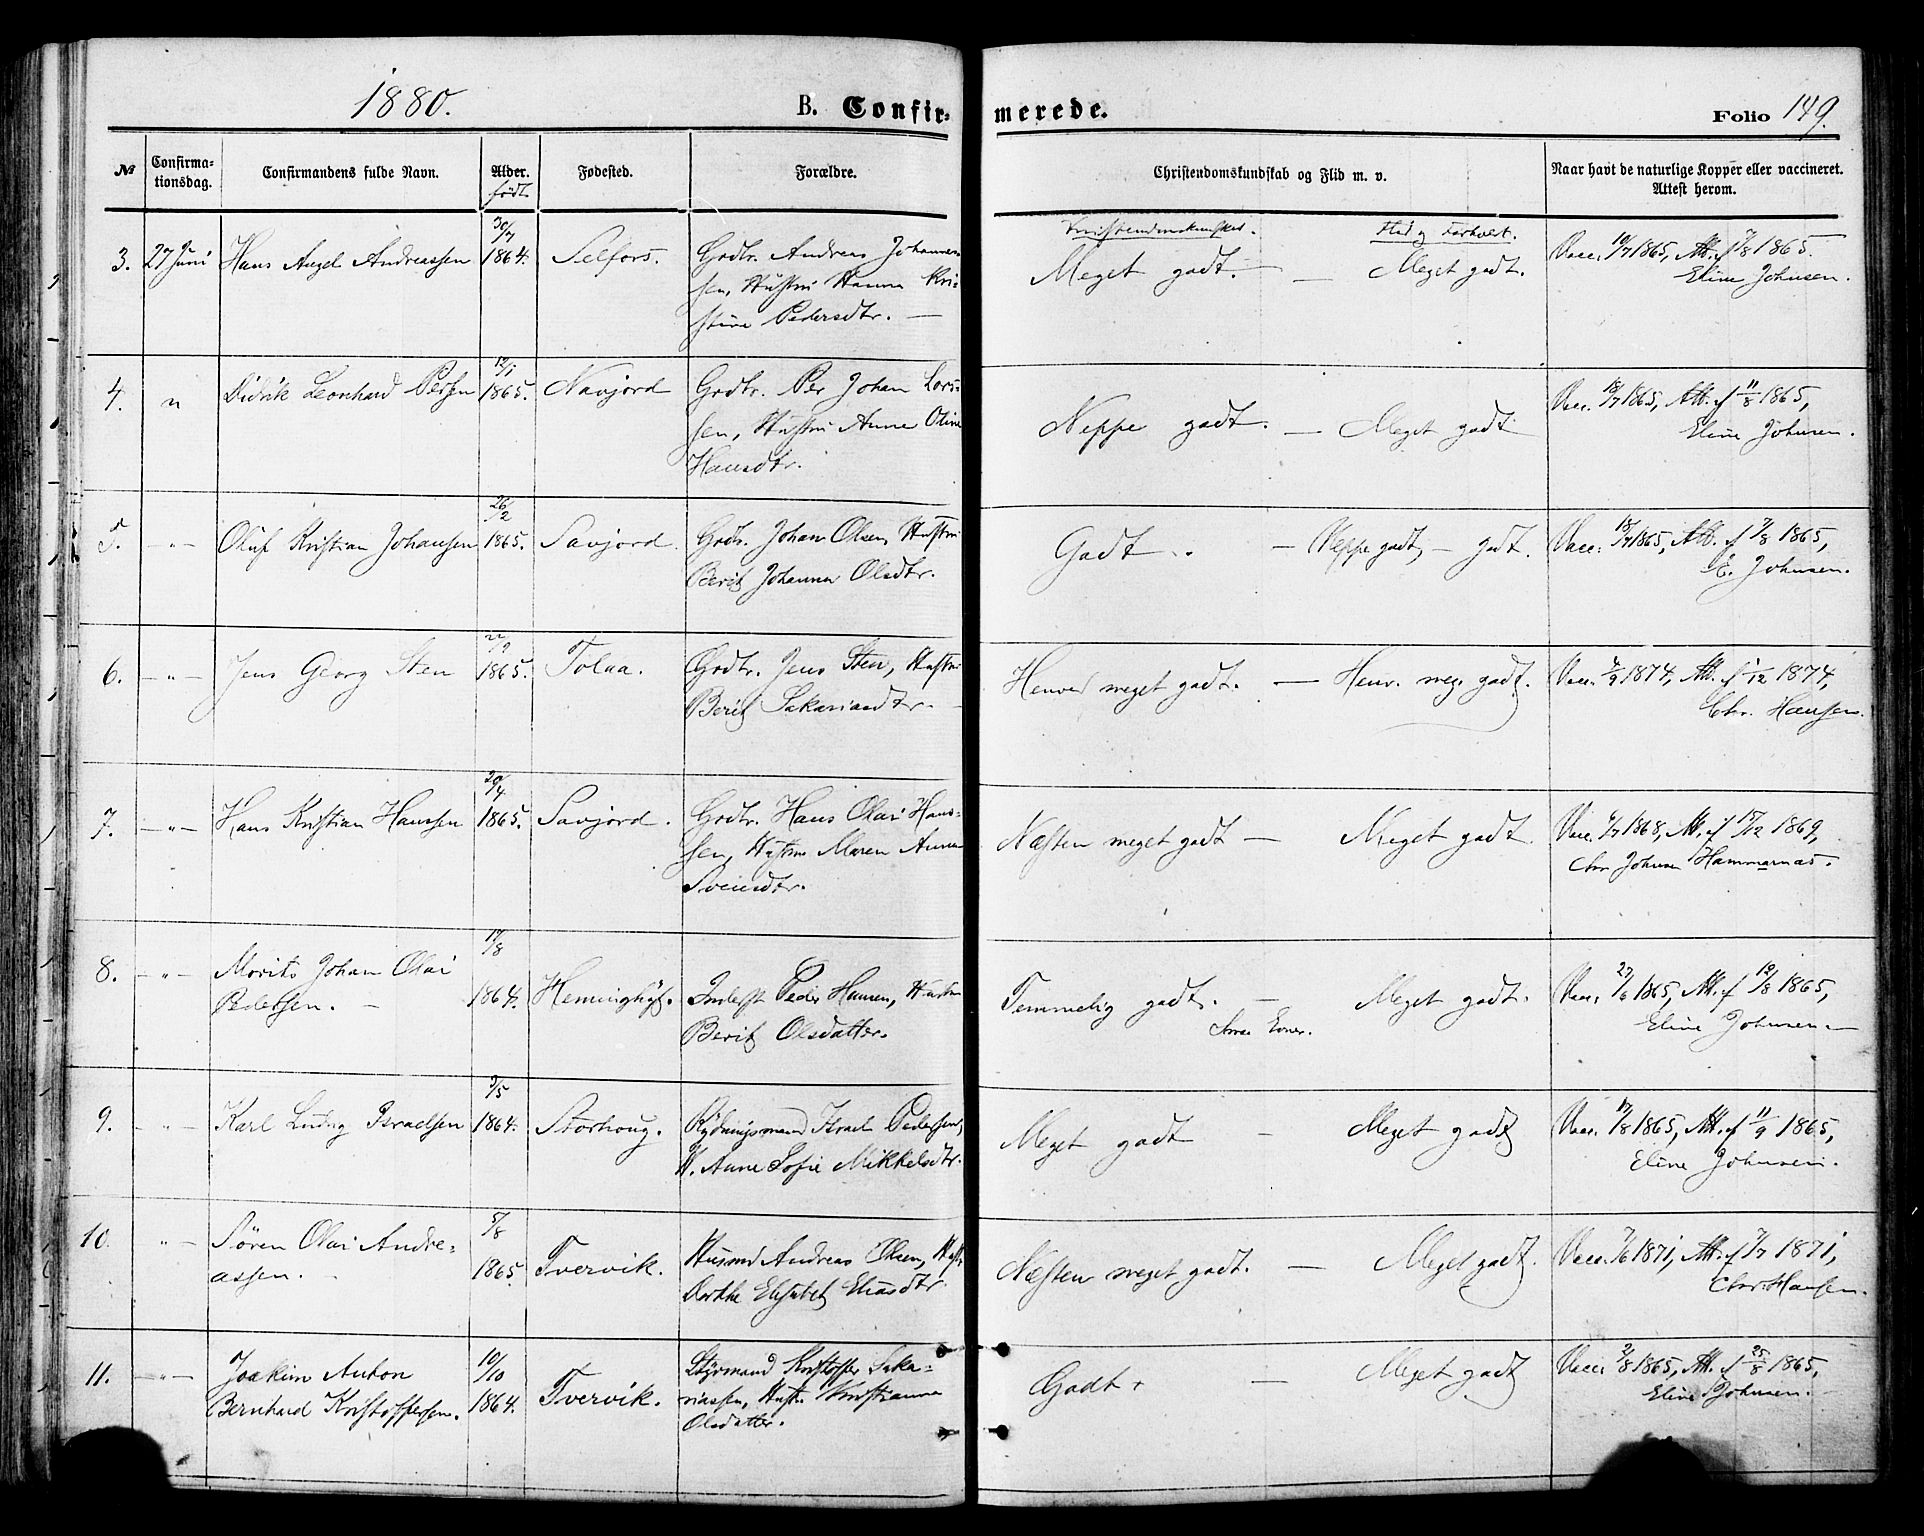 1880. B. Confirmerede. Folio 149.
№ Confirmationsdag. Confirmandens fulde Navn. Alder. født Fødested. Forældre. Christendomskundskab og Flid m. v. Naar havt de naturlige Kopper eller vaccineret. Attest herom.
3. 27 Juni Hans Angel Andreassen 30/7 1864. Selfors. Godtr. Andreas Johannes-
sen, Hustru Hanna Kri-
stine Pedersdtr. —
Meget godt. — Flid og Forhold. Meget godt. Vacc. 10/7 1865, Att. f 7/8 1865.
Eline Johnsen.
4. " Didrik Leonhard Persen 12/1 1865. Navjord Godtr. Per Johan Lors-
sen, Hustru Anne Oline
Hansdtr.
Neppe godt. — Meget godt Vacc. 18/7 1865, Att. f 11/8 1865,
Eline Johnsen.
5. — " — Oluf Kristian Johansen 26/2 1865. Savjord. Godtr. Johan Olsen, Hustru
Berit Johanna Olsdtr.
Godt. — Neppe godt, — godt. Vacc. 18/7 1865, Att. f 7/8 1865,
E. Johnsen.
6. — " — Jens Georg Sten 22/9 1865. Tolaa. Godtr. Jens Sten, Hustru
Berit Sakariasdtr. —
Henved meget godt. — Henv. meg. godt. Vacc. 2/9 1874, Att. f 1/12 1874,
Chr. Hansen.
7. — " — Hans Kristian Hanssen 20/4 1865. Savjord. Godtr. Hans Olai Hans-
sen, Hustru Maren Anna
Svendsdtr.
Næsten meget godt — Meget godt Vacc. 9/7 1868, Att. f 17/12 1869,
Chr Johnsen Hammernæs.
8. — " — Morits Johan Olai
Pedersen. — 17/8 1864. Heminghyt. Inderst Peder Hansen, Hustru
Berit Olsdatter.
Temmelig godt. — Svae Evner. Meget godt. Vacc. 27/6 1865, Att. f 12/8 1865,
Eline Johnsen —
9. — " — Karl Ludvig Israelsen 9/5 1864. Storhoug. Rydningsmand Israel Pedersen,
H. Anne Sofie Mikkelsdtr.
Meget godt — Meget godt Vacc. 17/8 1865, Att. f 11/9 1865,
Eline Johnsen.
10. " — Søren Olai Andre-
assen. 5/8 1865. Tvervik. Husmd Andreas Olsen, Hust.
Dorthe Elisabet Eliasdtr.
Næsten meget godt. — Meget godt. Vacc. 7/6 1871, Att. f 7/7 1871,
Chr. Hansen.
11. — " — Joakim Anton
Bernhard Kristoffersen. 10/10 1864. Tvervik. Styrmand Kristoffer Saka-
riassen, Hust. Kristianna
Olsdatter.
Godt + — Meget godt Vacc. 2/8 1865, Att. f 25/8 1865,
Eline Johnsen.